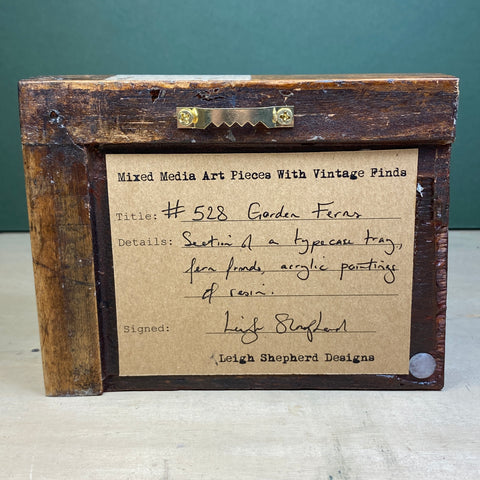 Mixed Media Art Pieces With Vintage Finds
Title: # 528 Garden Ferns
Details: Section of a typecase tray,
fern fronds, acrylic paintings
& resin.
Signed: Leigh Shepherd
Leigh Shepherd Designs